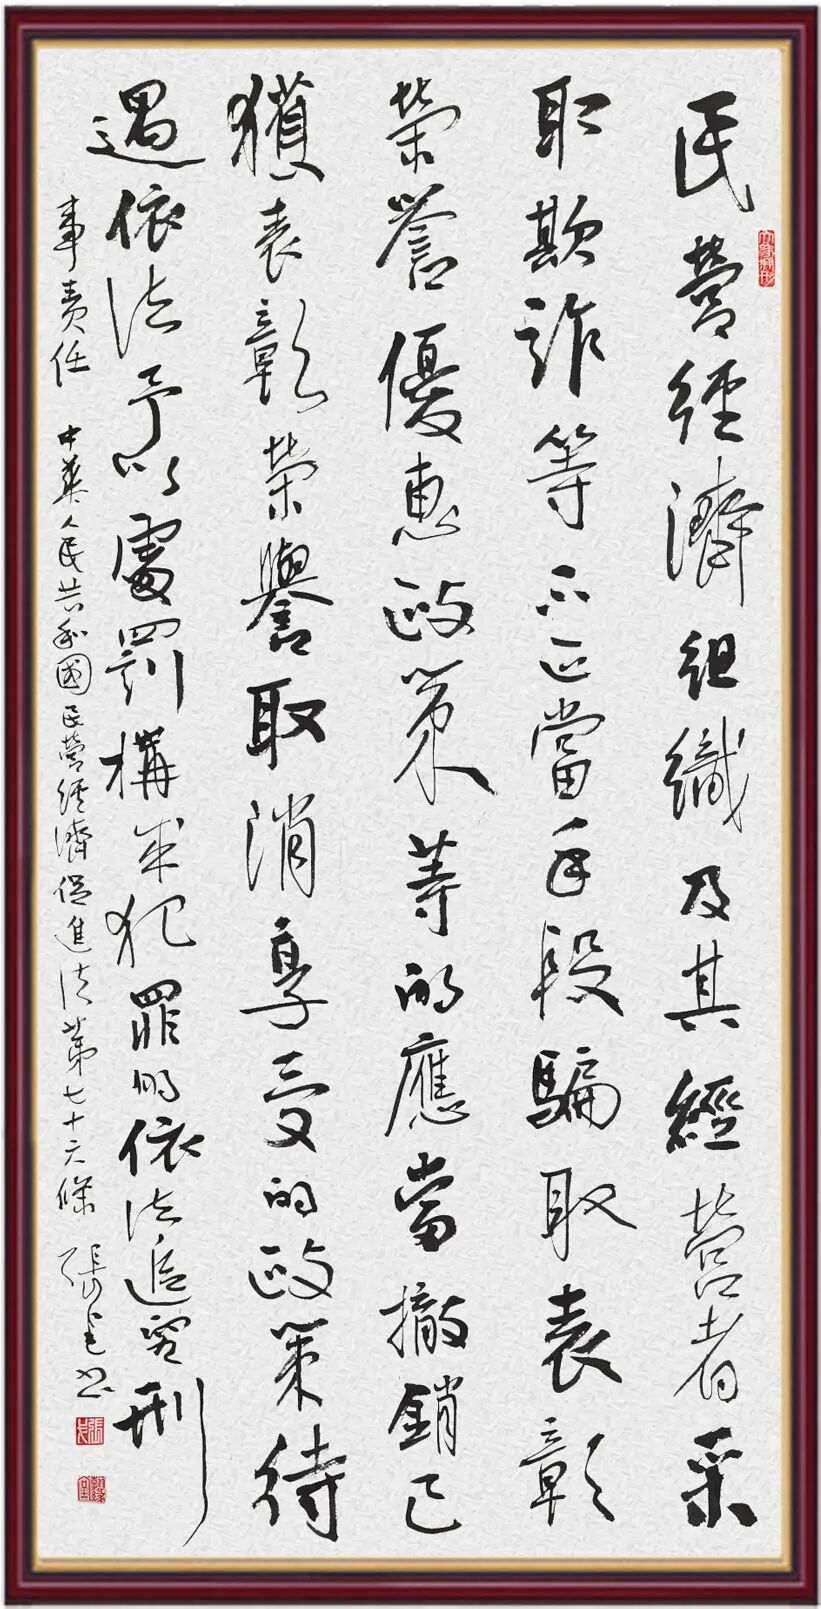 民營經濟組織及其經營者采
取欺詐等不正當手段騙取表彰
榮誉優惠政策等的應當撤銷已
獲表彰榮譽取消享受的政策待
遇依法予以處罰構成犯罪的依法追究刑
事責任 中華人民共和國民營經濟促進法第七十六條 張書